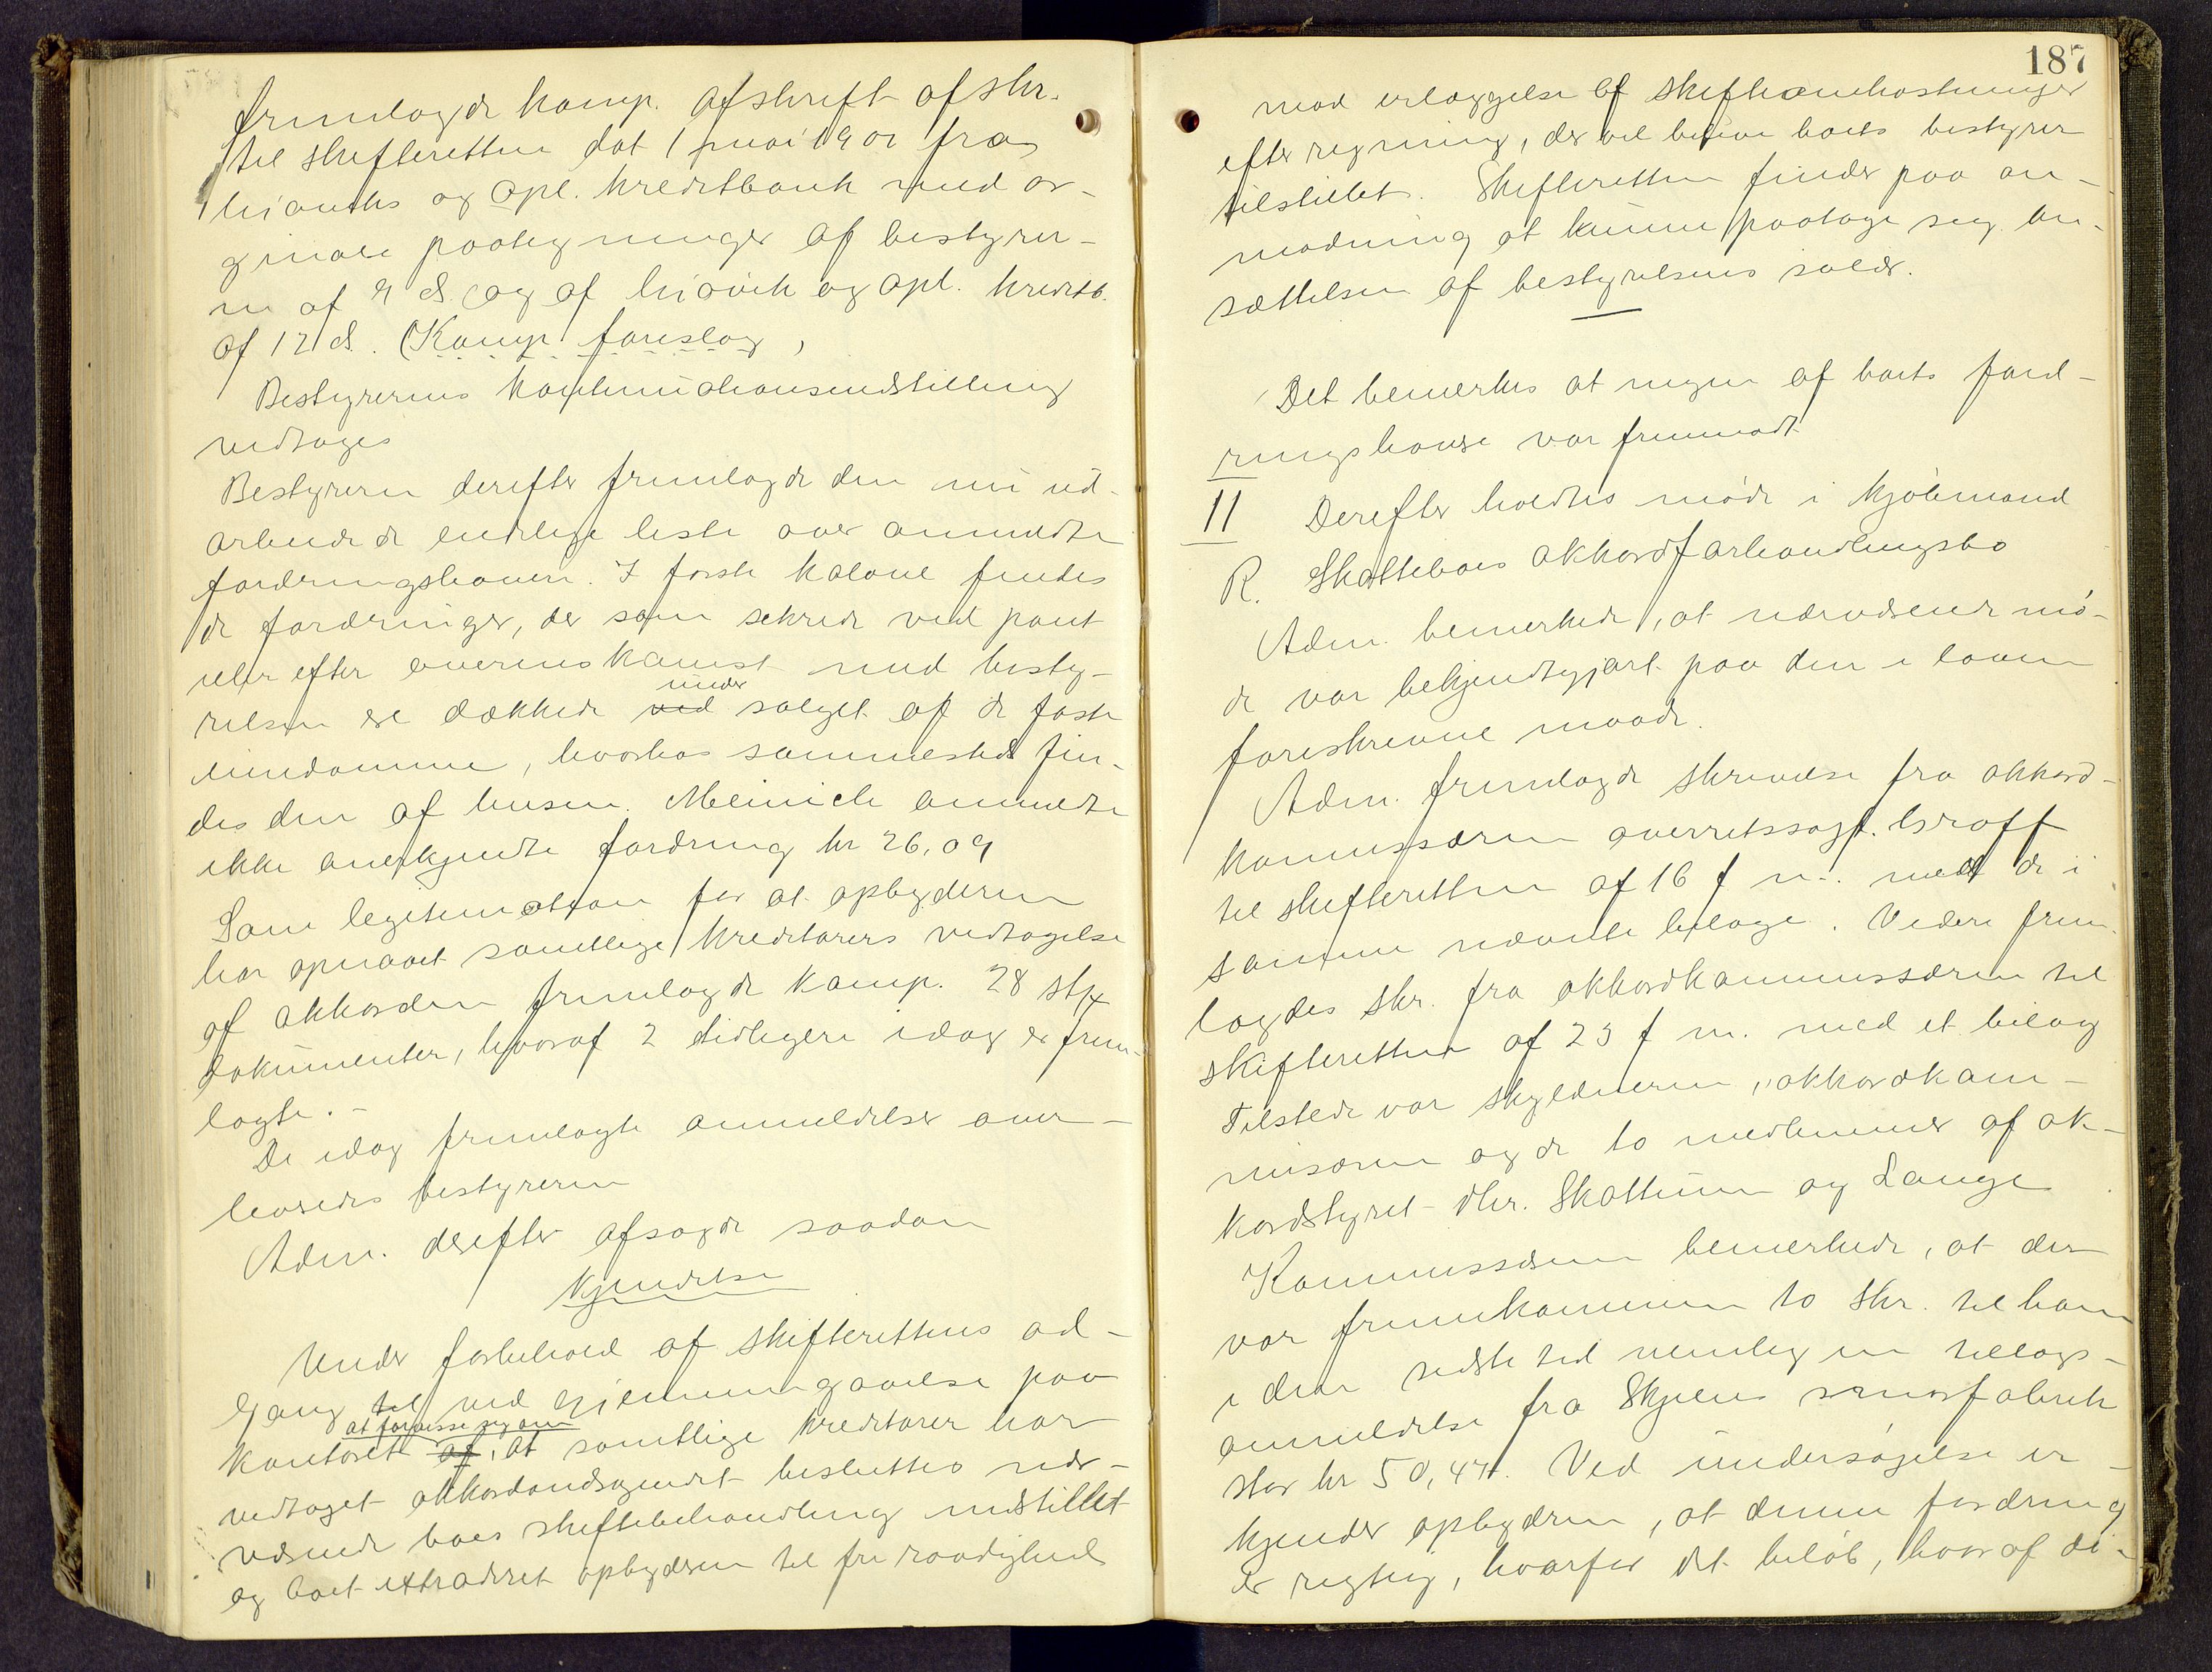 fremlagde komp. afskrift af skr.
til skifteretten dat 1 mai 1901 fra
Kristiania og opl. kreditbank med or-
ginale paategninger af bestyrer-
en af 9 ds. og af Kristiania og opl. kreditb.
af 12 ds. (Komp foreslog,
Bestyrerens kontinuationsindstilling
vedtoges
Bestyreren derefter fremlagde den nu ud-
arbeidede endelige liste over anmeldte
fordringshavere. I første kolone findes
de fordringer, der som sikrede ved pant
eller efter overenskomst med besty-
relsen ere dækkede ved under salget af de faste
eiendomme, hvorhos sammesteds fin-
des den af Meinich anmeldte
ikke anerkjendte fordring kr 26,09
Som legitimation for at opbyderen
har opnaaet samtlige kreditorers vedtagelse
af akkorden fremlagde komp. 28 stk
dokumenter, hvoraf 2 tidligere idag er frem-
lagte. -
De idag fremlagte anmeldelser over-
leveredes bestyreren
Adm. derefter afsagde saadan
Kjendelse
Under forbehold af skifterettens ad-
gang til ved gjennemgaaelse paa
kontoret af at forvisse sig om, at samtlige kreditorer har
vedtaget akkordandragendet besluttes nær-
værende boes skiftebehandling indstillet
og boet extraderet opbyderen til fri raadighed
187
mod erlæggelse af skifteomkostninger
efter regning, der vil blive boets bestyrer
tilstillet. Skifteretten finder paa an-
modning at kunne paatage sig an-
sættelsen af bestyrelsens salær.
Det bemerkes at ingen af boets ford-
ringshavere var fremmødt
11 Derefter holdtes møde i kjøbmand
R. Skattebøes akkordforhandlingsbo
Adm. bemerkede, at nærværende mø-
de var bekjendtgjort paa den i loven
foreskrevne maade.
Adm. fremlagde skrivelse fra akkord-
kommissæren overretssagf. Graff
til skifteretten af 16 f m. med de i
samme nævnte bilage. Videre frem-
lagdes skr. fra akkordkommissæren til
skifteretten af 23 f m. med et bilag
Tilstede var skyldneren, akkordkom-
misæren og de to medlemmer af ak-
kordstyret dhr. Skattum og Lange
Kommissæren bemerkede, at der
var fremkommen to skr. til ham
i den sidste tid nemlig en tillægs-
anmeldelse fra Skjens smørfabrik
stor kr 50,44. Ved undersøgelse er-
kjender opbyderen, at denne fordring
er rigtig, hvorfor det beløb, hvoraf di-